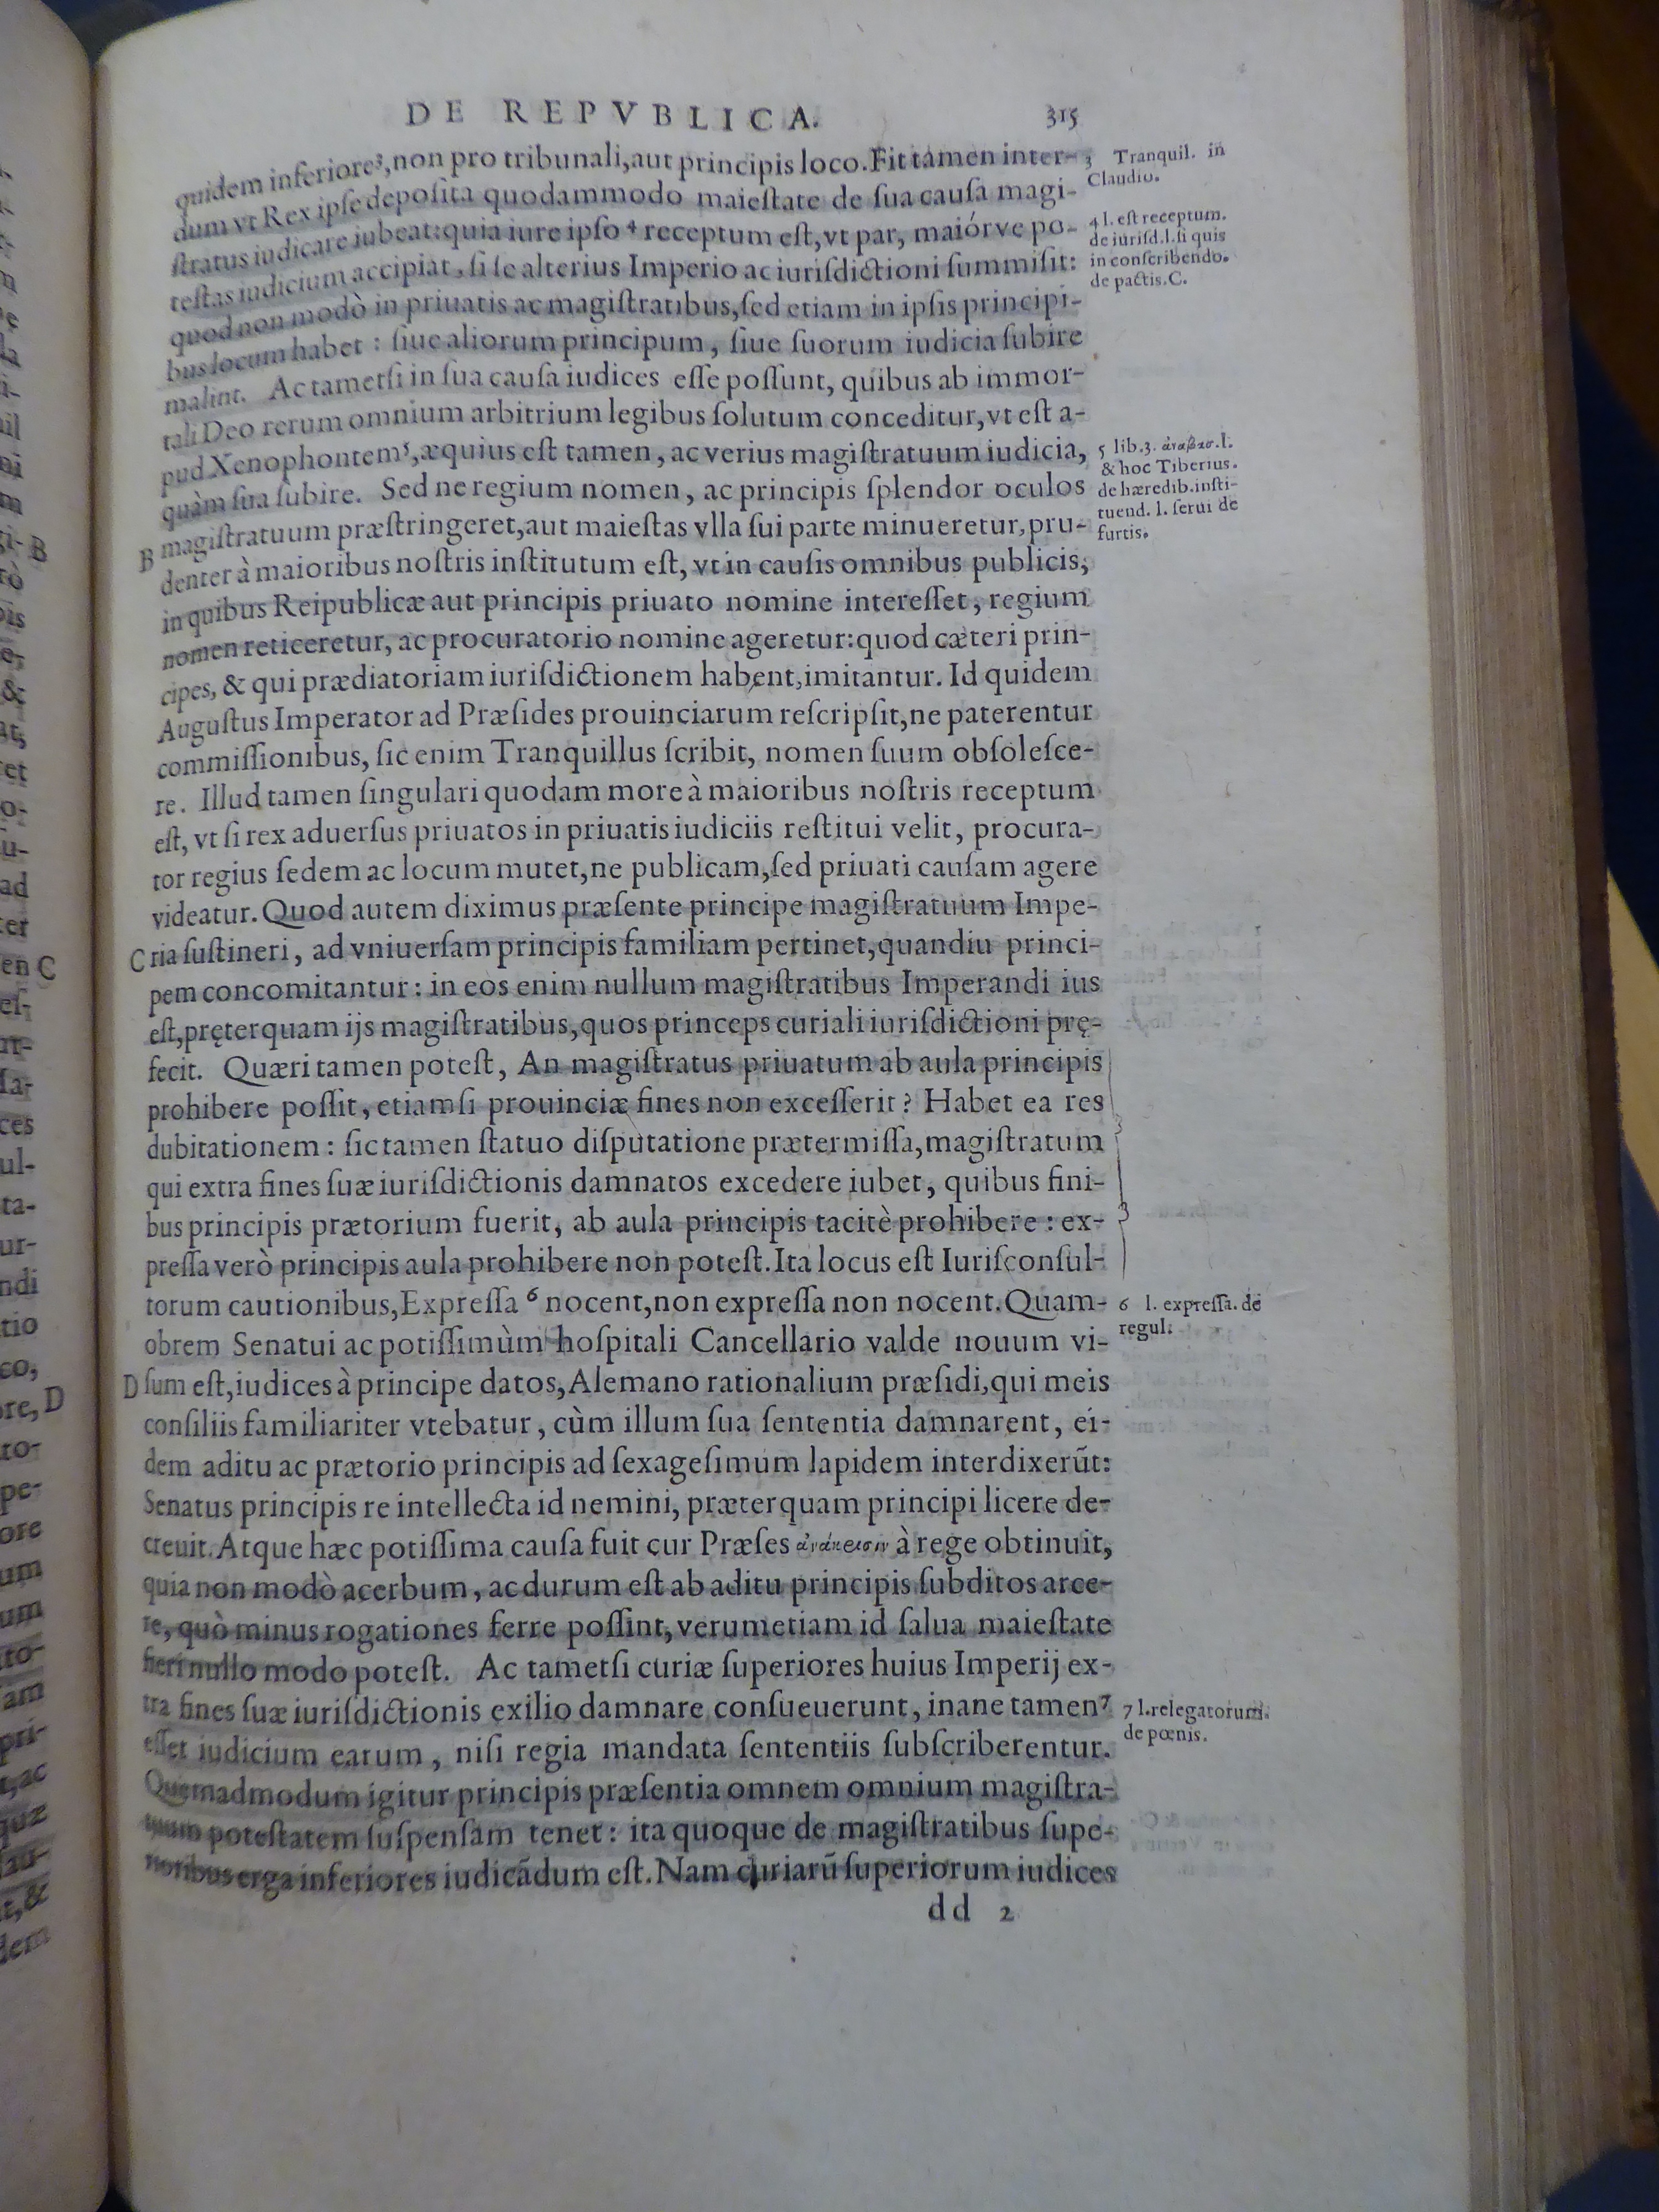 DE REPVBLICA. 315
quidem inferiore³, non pro tribunali, aut principis loco. Fit tamen inter-
dum vt Rex ipse deposita quodammodo maiestate de sua causa magi-
stratus iudicare iubeat: quia iure ipso ⁴ receptum est, vt par, maiórve po-
testas iudicium accipiat, si se alterius Imperio ac iurisdictioni summisit:
quod non modò in priuatis ac magistratibus, sed etiam in ipsis principi-
bus locum habet : siue aliorum principum, siue suorum iudicia subire
malint. Ac tametsi in sua causa iudices esse possunt, quibus ab immor-
tali Deo rerum omnium arbitrium legibus solutum conceditur, vt est a-
pud Xenophontem⁵, æquius est tamen, ac verius magistratuum iudicia,
quàm sua subire. Sed ne regium nomen, ac principis splendor oculos
B magistratuum præstringeret, aut maiestas vlla sui parte minueretur, pru-
denter à maioribus nostris institutum est, vt in causis omnibus publicis,
in quibus Reipublicæ aut principis priuato nomine interesset, regium
nomen reticeretur, ac procuratorio nomine ageretur: quod cæteri prin-
cipes, & qui prædiatoriam iurisdictionem habent, imitantur. Id quidem
Augustus Imperator ad Præsides prouinciarum rescripsit, ne paterentur
commissionibus, sic enim Tranquillus scribit, nomen suum obsolesce-
re. Illud tamen singulari quodam more à maioribus nostris receptum
est, vt si rex aduersus priuatos in priuatis iudiciis restitui velit, procura-
tor regius sedem ac locum mutet, ne publicam, sed priuati causam agere
videatur. Quod autem diximus præsente principe magistratuum Impe-
C ria sustineri, ad vniuersam principis familiam pertinet, quandiu princi-
pem concomitantur: in eos enim nullum magistratibus Imperandi ius
est, pręterquam ijs magistratibus, quos princeps curiali iurisdictioni prę-
fecit. Quæri tamen potest, An magistratus priuatum ab aula principis
prohibere possit, etiamsi prouinciæ fines non excesserit? Habet ea res
dubitationem: sic tamen statuo disputatione prætermissa, magistratum
qui extra fines suæ iurisdictionis damnatos excedere iubet, quibus fini-
bus principis prætorium fuerit, ab aula principis tacitè prohibere: ex-
pressa verò principis aula prohibere non potest. Ita locus est Iurisconsul-
torum cautionibus, Expressa ⁶ nocent, non expressa non nocent. Quam-
obrem Senatui ac potissimùm hospitali Cancellario valde nouum vi-
D sum est, iudices à principe datos, Alemano rationalium præsidi, qui meis
consiliis familiariter vtebatur, cùm illum sua sententia damnarent, ei-
dem aditu ac prætorio principis ad sexagesimum lapidem interdixerũt:
Senatus principis re intellecta id nemini, præterquam principi licere de-
creuit. Atque hæc potissima causa fuit cur Præses à rege obtinuit,
quia non modò acerbum, ac durum est ab aditu principis subditos arce-
re, quò minus rogationes ferre possint, verumetiam id salua maiestate
fieri nullo modo potest. Ac tametsi curiæ superiores huius Imperij ex-
tra fines suæ iurisdictionis exilio damnare consueuerunt, inane tamen⁷
esset iudicium earum, nisi regia mandata sententiis subscriberentur.
Quemadmodum igitur principis præsentia omnem omnium magistra-
tuum potestatem suspensam tenet: ita quoque de magistratibus supe-
rioribus erga inferiores iudicãdum est. Nam curiarũ superiorum iudices
dd 2
3 Tranquil. in
Claudio.
4 l. est receptum.
de iurisd. l. si quis
in conscribendo.
de pactis. C.
5 lib. 3. ἀναβασ. l.
& hoc Tiberius.
de hæredib. insti-
tuend. l. serui de
furtis.
6 l. expressa. de
regul.
7 l. relegatorum.
de pœnis.